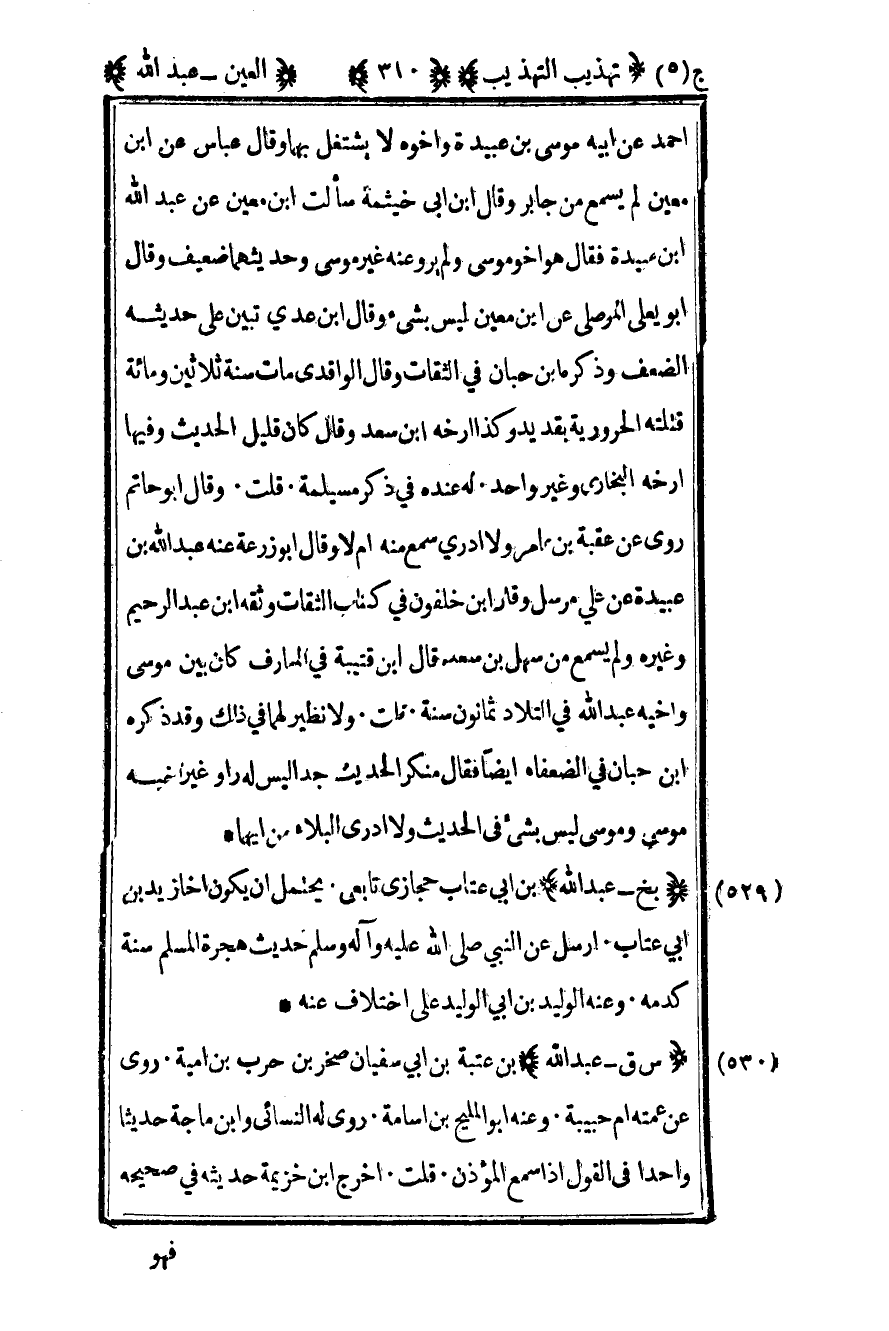 ج(٥) ﴿ تهذيب التهذيب ﴾ ﴿ ٣١٠ ﴾ ﴿ العين ـ عبد الله ﴾
احمد عن ابيه موسى بن عبيدة واخوه لا يشتغل بهما وقال عباس عن ابن
معين لم يسمع من جابر وقال ابن ابى خيثمة سألت ابن معين عن عبد الله
ابن عبيدة فقال هو اخو موسى ولم يرو عنه غير موسى وحديثهما ضعيف وقال
ابو يعلى الموصلى عن ابن معين ليس بشىء وقال ابن عدي تبين على حديثه
الضعف وذكره ابن حبان في الثقات وقال الواقدى مات سنة ثلاثين ومائة
قتلته الحرورية بقديد وكذا ارخه ابن سعد وقال كان قليل الحديث وفيها
ارخه البخارى وغير واحد ٠ له عنده في ذكر مسيلمة ٠ قلت ٠ وقال ابو حاتم
روى عن عقبة بن عامر ولا ادري سمع منه ام لا وقال ابو زرعة عنه عبد الله بن
عبيدة عن علي مرسل وقال ابن خلفون في كتاب الثقات وثقه ابن عبد الرحيم
وغيره ولم يسمع من سهل بن سعد قال ابن قتيبة في المعارف كان بين موسى
واخيه عبد الله في التلاد ثمانون سنة ٠ قلت ٠ ولا نظير لهما في ذلك وقد ذكره
ابن حبان في الضعفاء ايضاً فقال منكر الحديث جدا ليس له راو غير اخيه
موسي وموسى ليس بشئ فى الحديث ولا ادرى البلاء من ايهما *
(٥٢٩) ﴿ بخ ـ عبد الله ﴾ بن ابي عتاب حجازى تابعى ٠ يحتمل ان يكون اخا زيد بن
ابي عتاب ٠ ارسل عن النبي صلى الله عليه وآله وسلم حديث هجرة المسلم سنة
كدمه ٠ وعنه الوليد بن ابي الوليد على اختلاف عنه *
(٥٣٠) ﴿ س ق ـ عبد الله ﴾ بن عتبة بن ابي سفيان صخر بن حرب بن امية ٠ روى
عن عمته ام حبيبة ٠ وعنه ابو المليح بن اسامة ٠ روى له النسائى وابن ماجة حديثا
واحدا فى القول اذا سمع المؤذن ٠ قلت ٠ اخرج ابن خزيمة حديثه في صحيحه
فهو